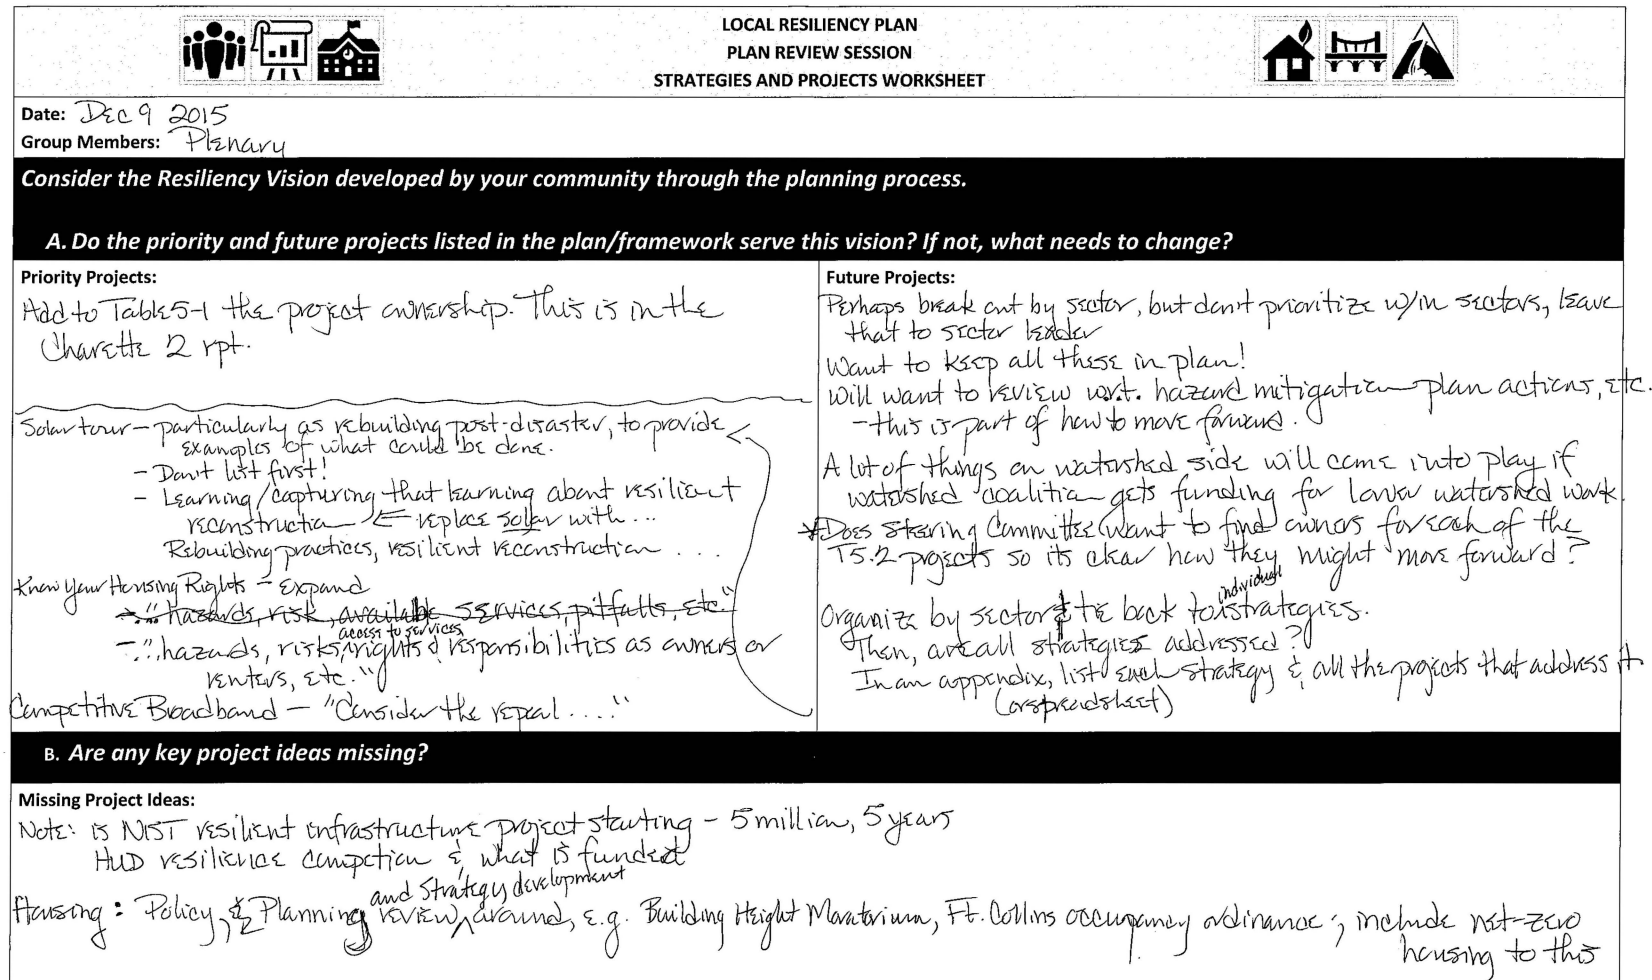 LOCAL RESILIENCY PLAN
PLAN REVIEW SESSION
STRATEGIES AND PROJECTS WORKSHEET
Date: Dec 9 2015
Group Members: Plenary
Consider the Resiliency Vision developed by your community through the planning process.
A. Do the priority and future projects listed in the plan/framework serve this vision? If not, what needs to change?
Priority Projects:
Add to Table 5-1 the project ownership. This is in the
Charette 2 rpt.
Solar tour – particularly as rebuilding post-disaster, to provide
examples of what could be done.
- Don't list first!
- Learning/capturing that learning about resilient
reconstruction ← replace solar with...
Rebuilding practices, resilient reconstruction ...
Know Your Housing Rights – Expand
- ".. hazards, risk, available services, pitfalls, etc."
access to services,
- ".. hazards, risks, rights & responsibilities as owners or
renters, etc."
Competitive Broadband – "Consider the repeal ...."
Future Projects:
Perhaps break out by sector, but don't prioritize w/in sectors, leave
that to sector leader
Want to keep all these in plan!
Will want to review w.r.t. hazard mitigation plan actions, etc.
- this is part of how to move forward.
A lot of things on watershed side will come into play if
watershed coalition gets funding for lower watershed work.
* Does Steering Committee want to find owners for each of the
T5.2 projects so its clear how they might move forward?
individual
Organize by sector & tie back to strategies.
Then, are all strategies addressed?
In an appendix, list each strategy & all the projects that address it
(or spreadsheet)
B. Are any key project ideas missing?
Missing Project Ideas:
Note: is NIST resilient infrastructure project starting – 5 million, 5 years
HUD resilience compction & what is funded
and strategy development
Housing: Policy, & Planning review, around, e.g. Building Height Moratorium, Ft. Collins occupancy ordinance; include net-zero
housing to this